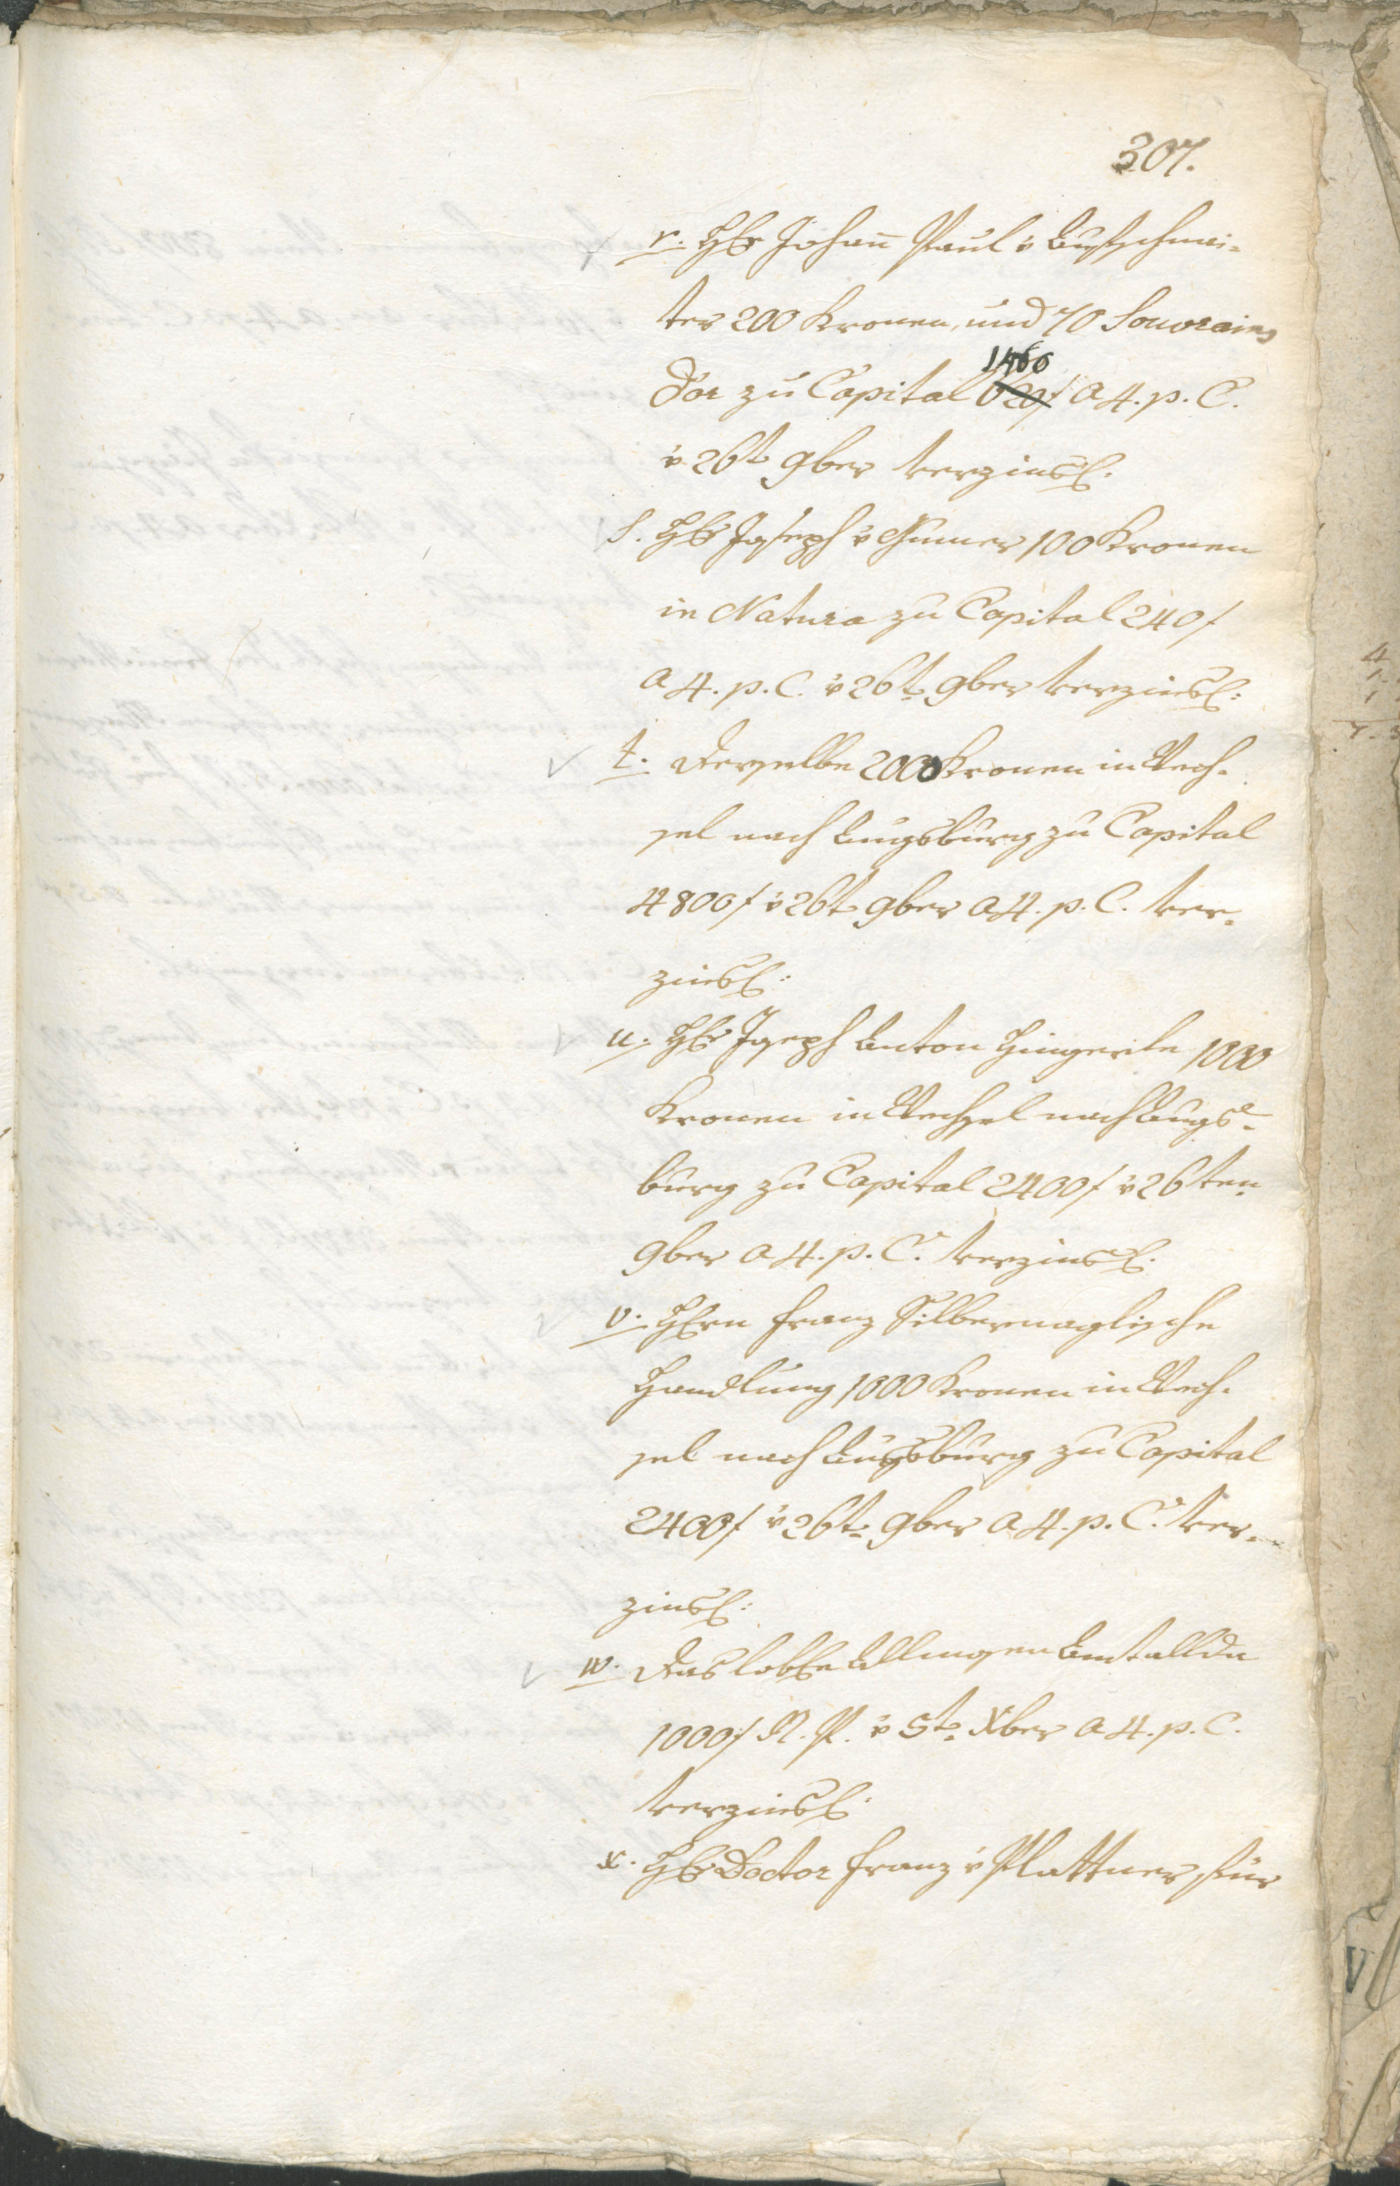 307.
r. H: Johann Paul v Aufschnai-
ter 200 Kronen, und 70 Souvrains
d'or zu Capital 1466 f a 4. p. C.
v 26t 9ber verzinsl:
s. H: Joseph v Gumer 100 Kronen
in Natura zu Capital 240 f
a 4. p. C. v 26t 9ber verzinsl:
t. derselbe 2000 Kronen in Wech-
sel nach Augsburg zu Capital
4800 f v 26t 9ber a 4. p. C. ver-
zinsl:
u. H: Joseph Anton Hingerle 1000
Kronen in Wechsel nach Augs-
burg zu Capital 2400 f v 26ten
9ber a 4. p. C. verzinsl:
v. Herrn Franz Silbernaglische
Handlung 1000 Kronen in Wech-
sel nach Augsburg zu Capital
2400 f v 26t 9ber a 4. p. C. ver-
zinsl:
w. das lobl: Allmosen Amt allda
1000 f R. W. v 5t Xber a 4. p. C.
verzinsl:
x. H: Doctor Franz v Plattner für